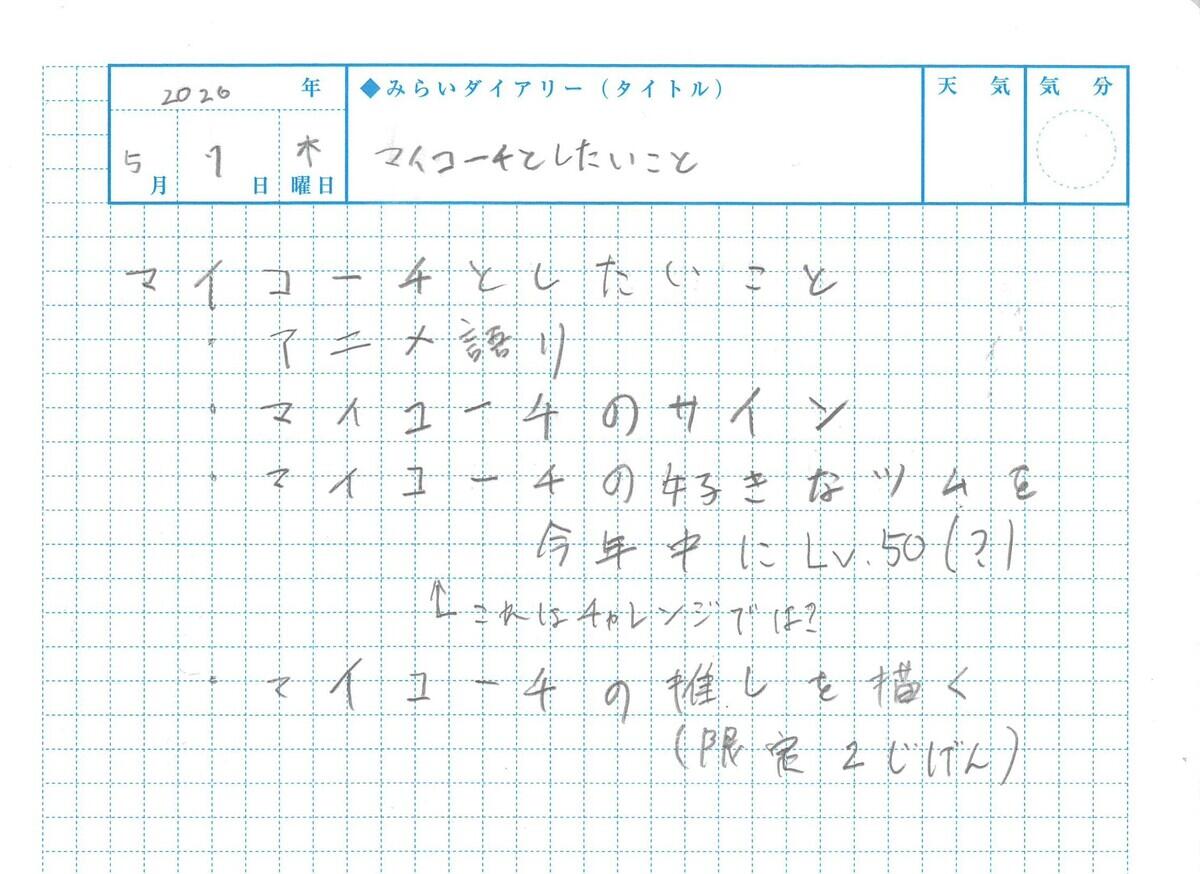 2026 年
◆みらいダイアリー(タイトル)
天 気
気 分
5月 7日 木曜日
マイコーチとしたいこと
マイコーチとしたいこと
・アニメ語り
・マイコーチのサイン
・マイコーチの好きなツムを
今年中にLv.50(?)
↑これはチャレンジでは?
・マイコーチの推しを描く
(限定2じげん)